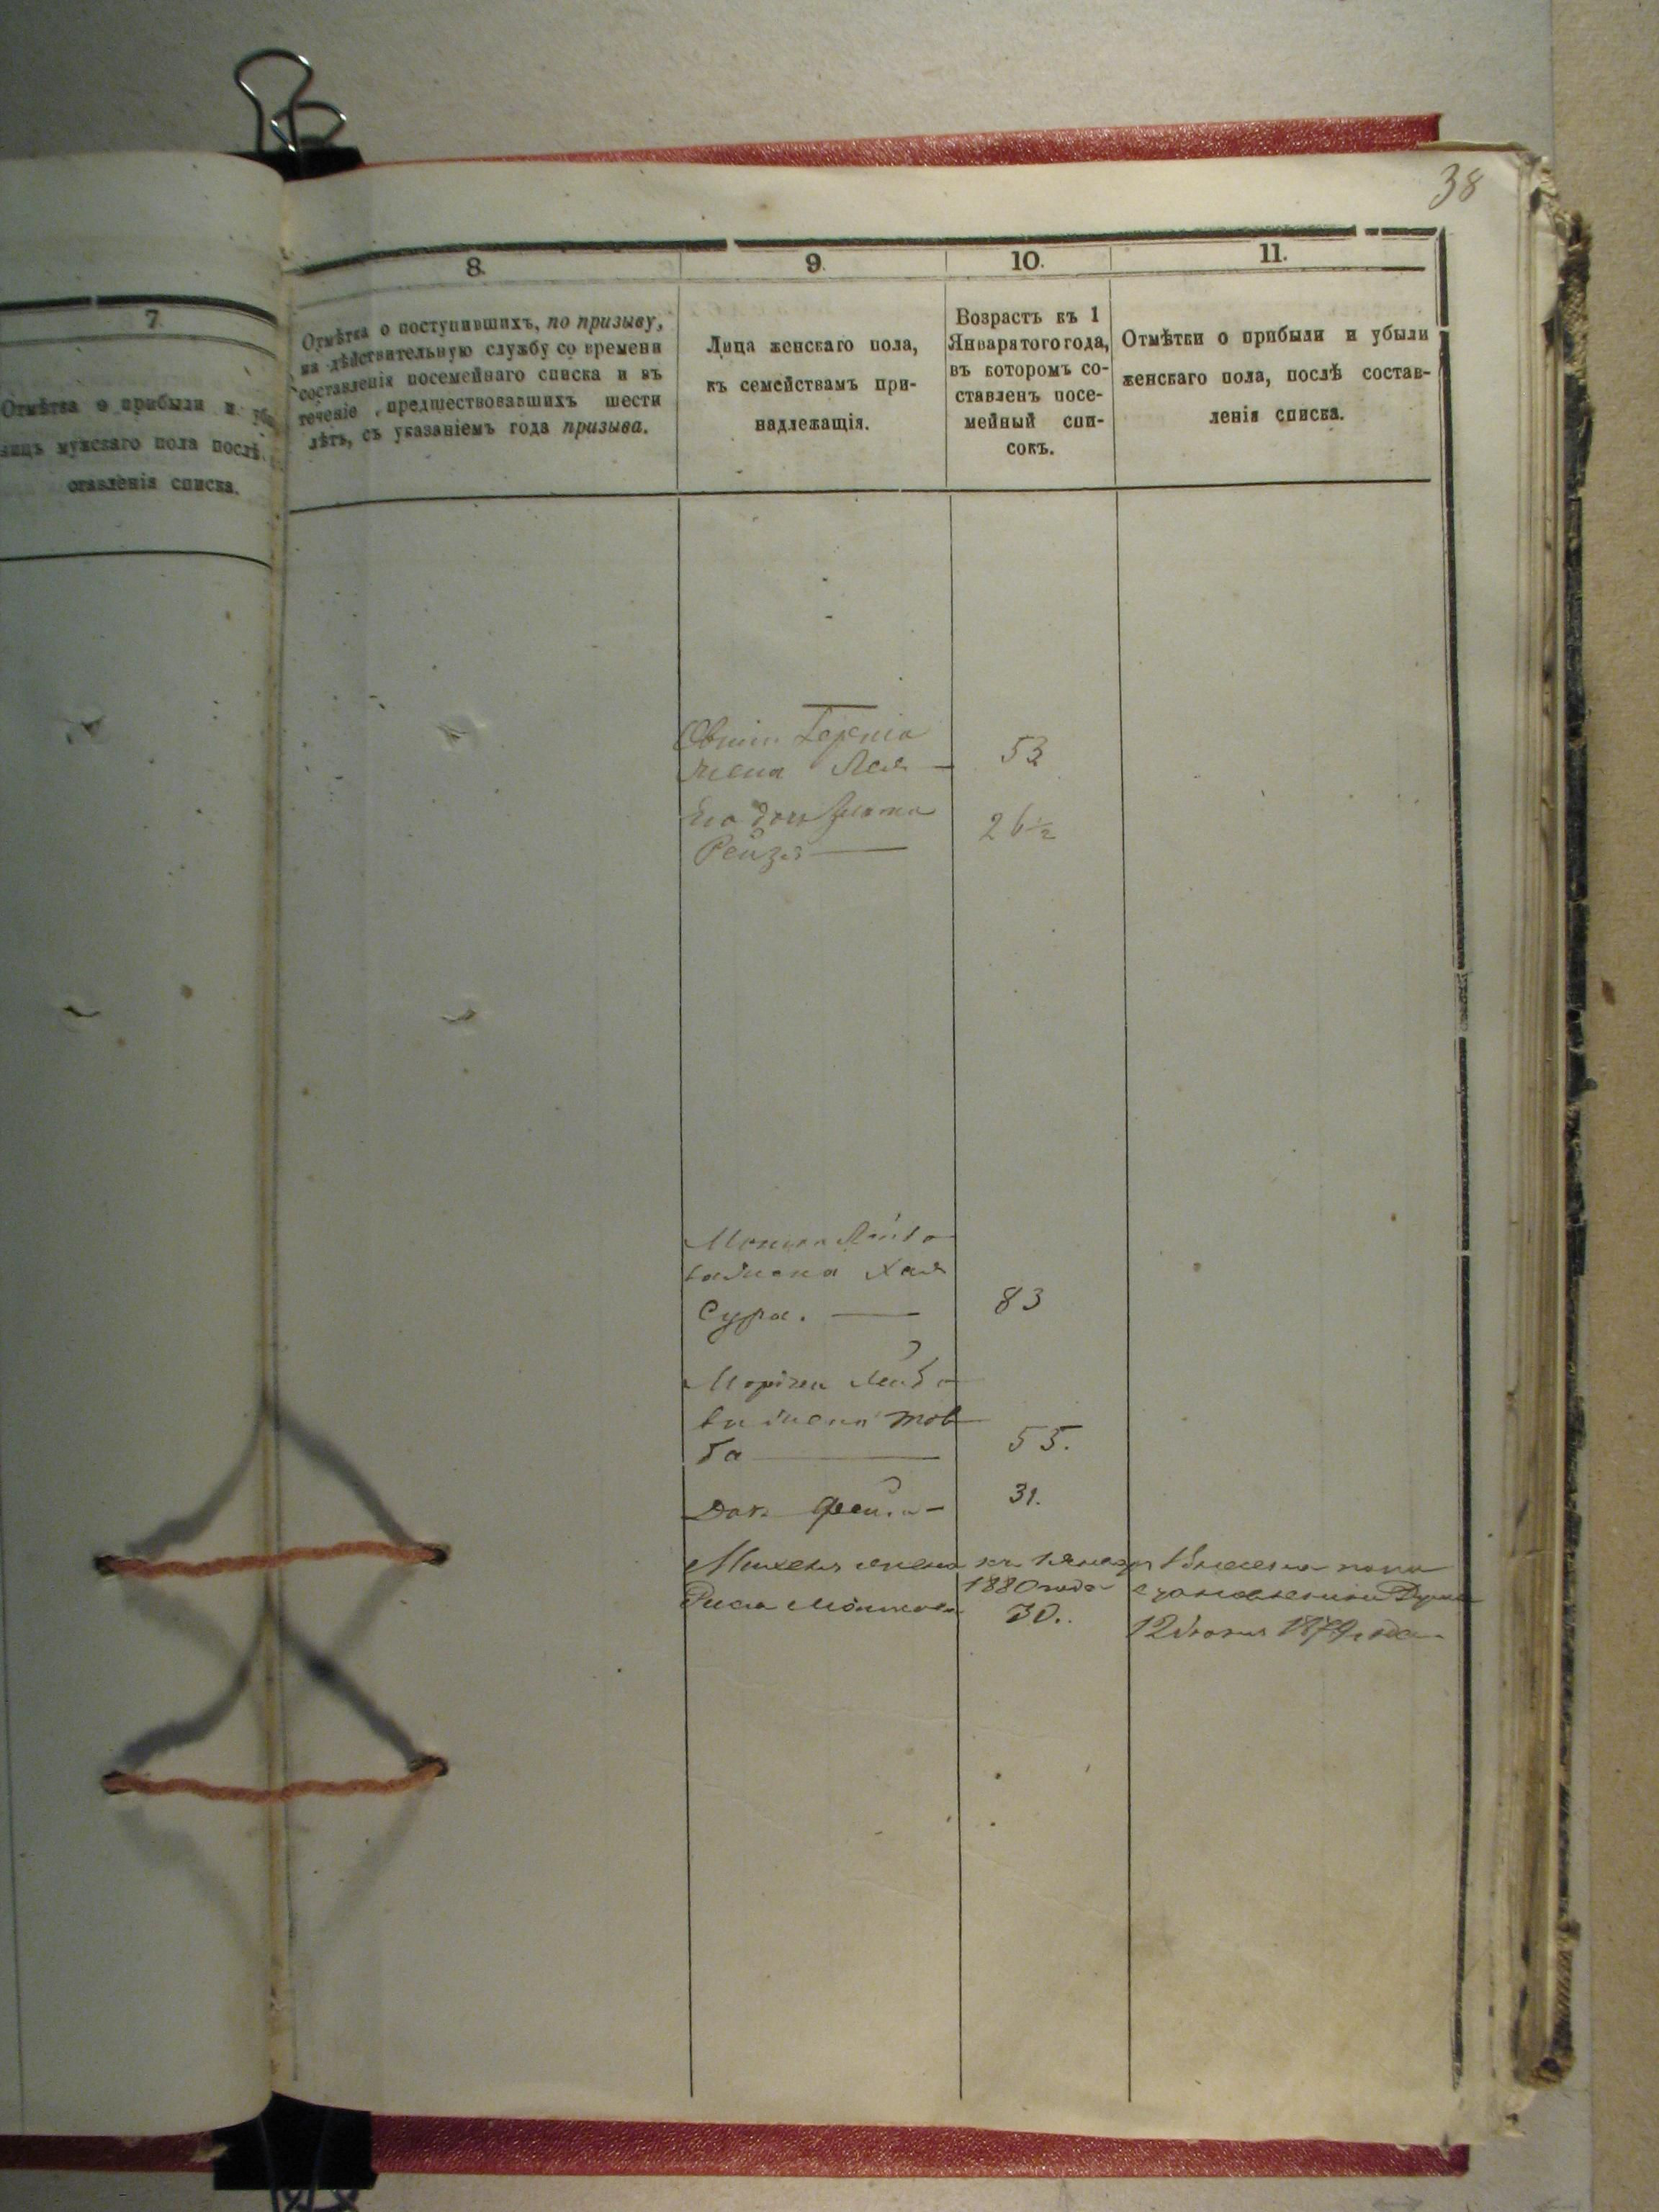 38
7.
Отмѣтка о прибыли и
лицъ мужскаго пола послѣ
ставленія списка.
8.
Отмѣтка о поступившихъ, по призыву,
на дѣйствительную службу со времени
составленія посемейнаго списка и въ
теченіе предшествовавшихъ шести
лѣтъ, съ указаніемъ года призыва.
9.
Лица женскаго пола,
къ семействамъ при-
надлежащія.
10.
Возрастъ къ 1
Января того года,
въ которомъ со-
ставленъ посе-
мейный спи-
сокъ.
11.
Отмѣтки о прибыли и убыли
женскаго пола, послѣ состав-
ленія списка.
жена Лея 53
Его доч
Рейзя 26½
Хая
Сура. 83
Лейбо
ва жена Тов
ба 55.
Доч 31.
Михеля жена къ 1 Января Внесена по по
Рися 1880 года становленію Думы
30. 12 Іюня 1879 года